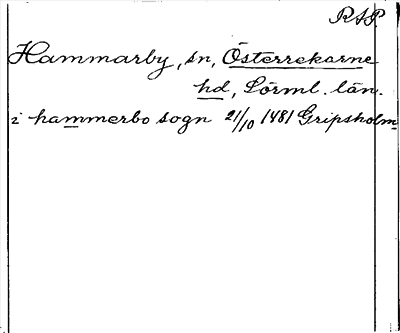 RAP.
Hammarby, sn, Österrekarne
hd, Sörml. län.
i hammerbo sogn 21/10 1481 Gripsholm